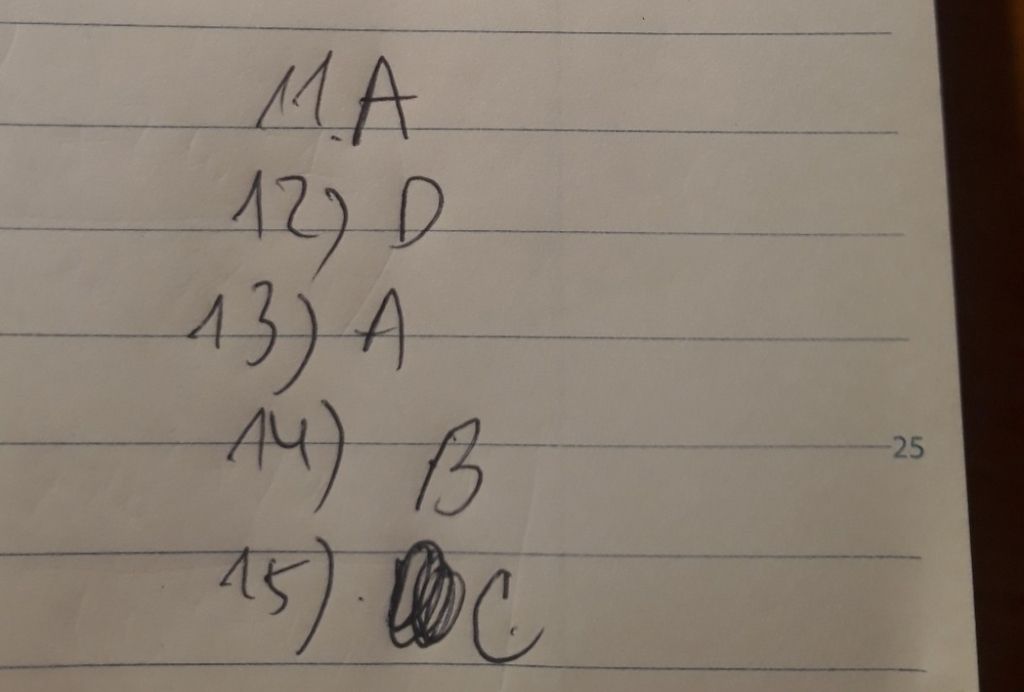 11. A
12) D
13) A
14) B
25
15) C